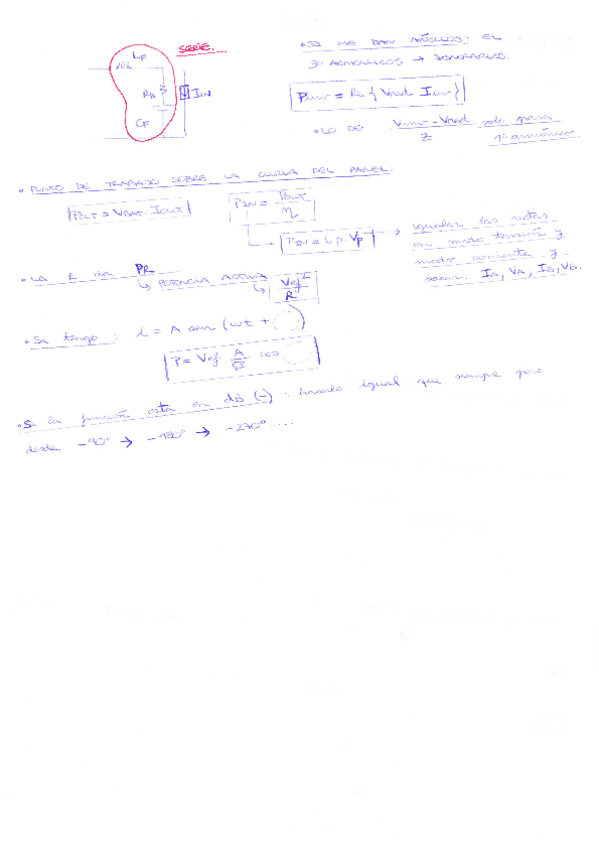 SERIE.
LF
RD
CF
• SI ME DAN AÑILLOS: EL
3er ARMÓNICOS → IGNORARLOS
Pinv = Re { Vred Iinv }
• LO DE Vinv - Vred / Z solo para
1er armónico
• PUNTO DE TRABAJO SOBRE LA CURVA DEL PANEL:
POUT = VOUT · IOUT
PIN = POUT / η
PIN = Ip · Vp
→ igualar las rectas
en modo tensión y
modo corriente y
sacar IA, VA; IB, VB.
• LA R da PR
↳ POTENCIA ACTIVA
↳ Vef² / R
• Si tengo : i = A sen (wt + )
P = Vef · A/√2 cos
• Si la función está en dB (-) : hacerlo igual que siempre pero
desde -90° → -180° → -270° ....